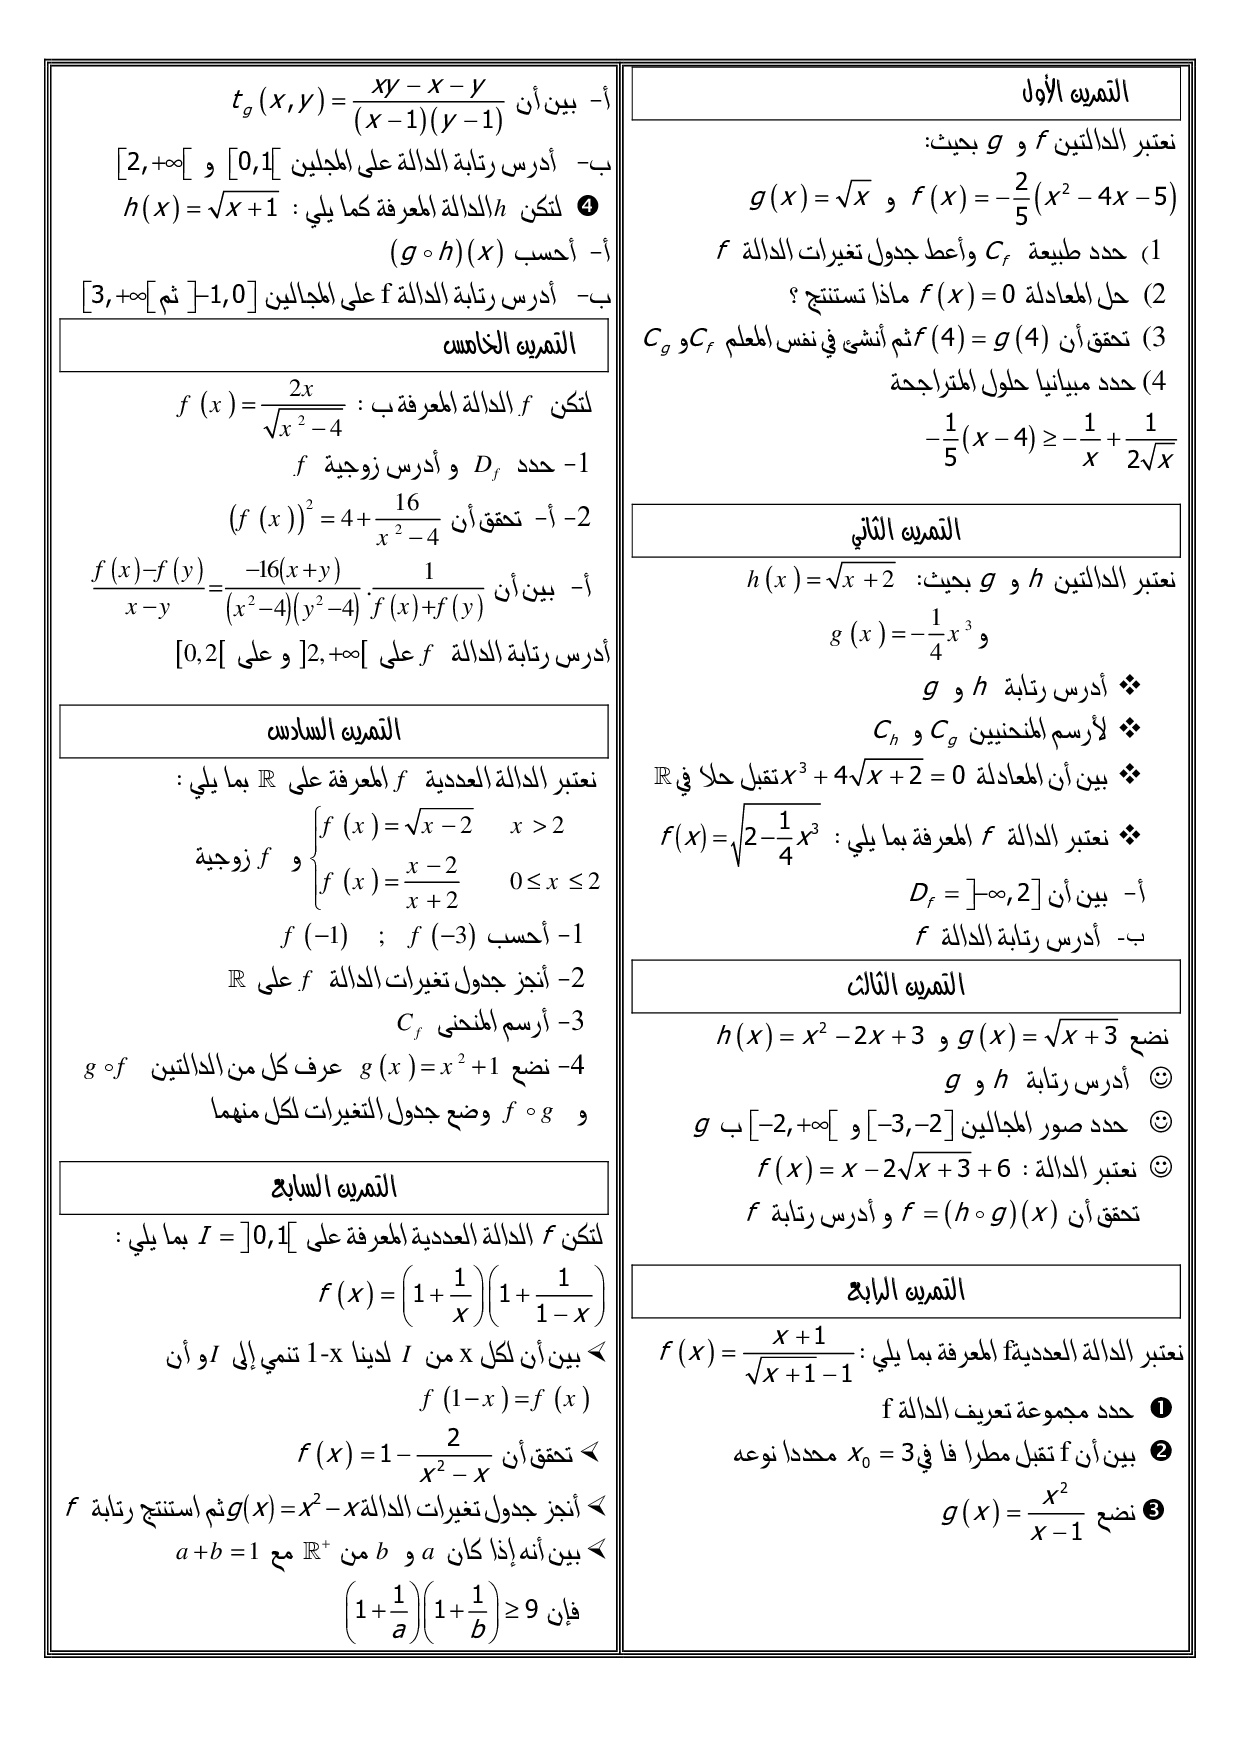 التمرين الأول
نعتبر الدالتين f و g بحيث:
f(x) = -2/5(x² - 4x - 5) و g(x) = √x
1) حدد طبيعة C_f وأعط جدول تغيرات الدالة f
2) حل المعادلة f(x) = 0 ماذا تستنتج ؟
3) تحقق أن f(4) = g(4) ثم أنشئ في نفس المعلم C_f و C_g
4) حدد مبيانيا حلول المتراجحة
-1/5(x - 4) ≥ -1/x + 1/(2√x)
التمرين الثاني
نعتبر الدالتين h و g بحيث: h(x) = √(x+2)
و g(x) = -1/4 x³
❖ أدرس رتابة h و g
❖ لأرسم المنحنيين C_g و C_h
❖ بين أن المعادلة x³ + 4√(x+2) = 0 تقبل حلا في ℝ
❖ نعتبر الدالة f المعرفة بما يلي : f(x) = √(2 - 1/4 x³)
أ- بين أن D_f = ]-∞,2]
ب- أدرس رتابة الدالة f
التمرين الثالث
نضع g(x) = √(x+3) و h(x) = x² - 2x + 3
☺ أدرس رتابة h و g
☺ حدد صور المجالين [-3,-2] و [-2,+∞[ ب g
☺ نعتبر الدالة : f(x) = x - 2√(x+3) + 6
تحقق أن f = (h∘g)(x) و أدرس رتابة f
التمرين الرابع
نعتبر الدالة العدديةf المعرفة بما يلي : f(x) = (x+1)/(√(x+1) - 1)
❶ حدد مجموعة تعريف الدالة f
❷ بين أن f تقبل مطرا فا في x₀ = 3 محددا نوعه
❸ نضع g(x) = x²/(x-1)
أ- بين أن t_g(x,y) = (xy - x - y)/((x-1)(y-1))
ب- أدرس رتابة الدالة على المجلين [0,1[ و [2,+∞[
❹ لتكن h الدالة المعرفة كما يلي : h(x) = √(x+1)
أ- أحسب (g∘h)(x)
ب- أدرس رتابة الدالة f على المجالين ]-1,0] ثم [3,+∞[
التمرين الخامس
لتكن f الدالة المعرفة ب : f(x) = 2x/√(x²-4)
1- حدد D_f و أدرس زوجية f
2- أ- تحقق أن (f(x))² = 4 + 16/(x²-4)
أ- بين أن (f(x)-f(y))/(x-y) = -16(x+y)/((x²-4)(y²-4)) . 1/(f(x)+f(y))
أدرس رتابة الدالة f على ]2,+∞[ و على [0,2[
التمرين السادس
نعتبر الدالة العددية f المعرفة على ℝ بما يلي :
{ f(x) = √(x-2) x > 2
f(x) = (x-2)/(x+2) 0 ≤ x ≤ 2 و f زوجية
1- أحسب f(-3) ; f(-1)
2- أنجز جدول تغيرات الدالة f على ℝ
3- أرسم المنحنى C_f
4- نضع g(x) = x² + 1 عرف كل من الدالتين g∘f
و f∘g وضع جدول التغيرات لكل منهما
التمرين السابع
لتكن f الدالة العددية المعرفة على I = ]0,1[ بما يلي :
f(x) = (1 + 1/x)(1 + 1/(1-x))
➢ بين أن لكل x من I لدينا 1-x تنمي إلى I و أن
f(1-x) = f(x)
➢ تحقق أن f(x) = 1 - 2/(x² - x)
➢ أنجز جدول تغيرات الدالة g(x) = x² - x ثم استنتج رتابة f
➢ بين أنه إذا كان a و b من ℝ⁺ مع a+b = 1
فإن (1 + 1/a)(1 + 1/b) ≥ 9